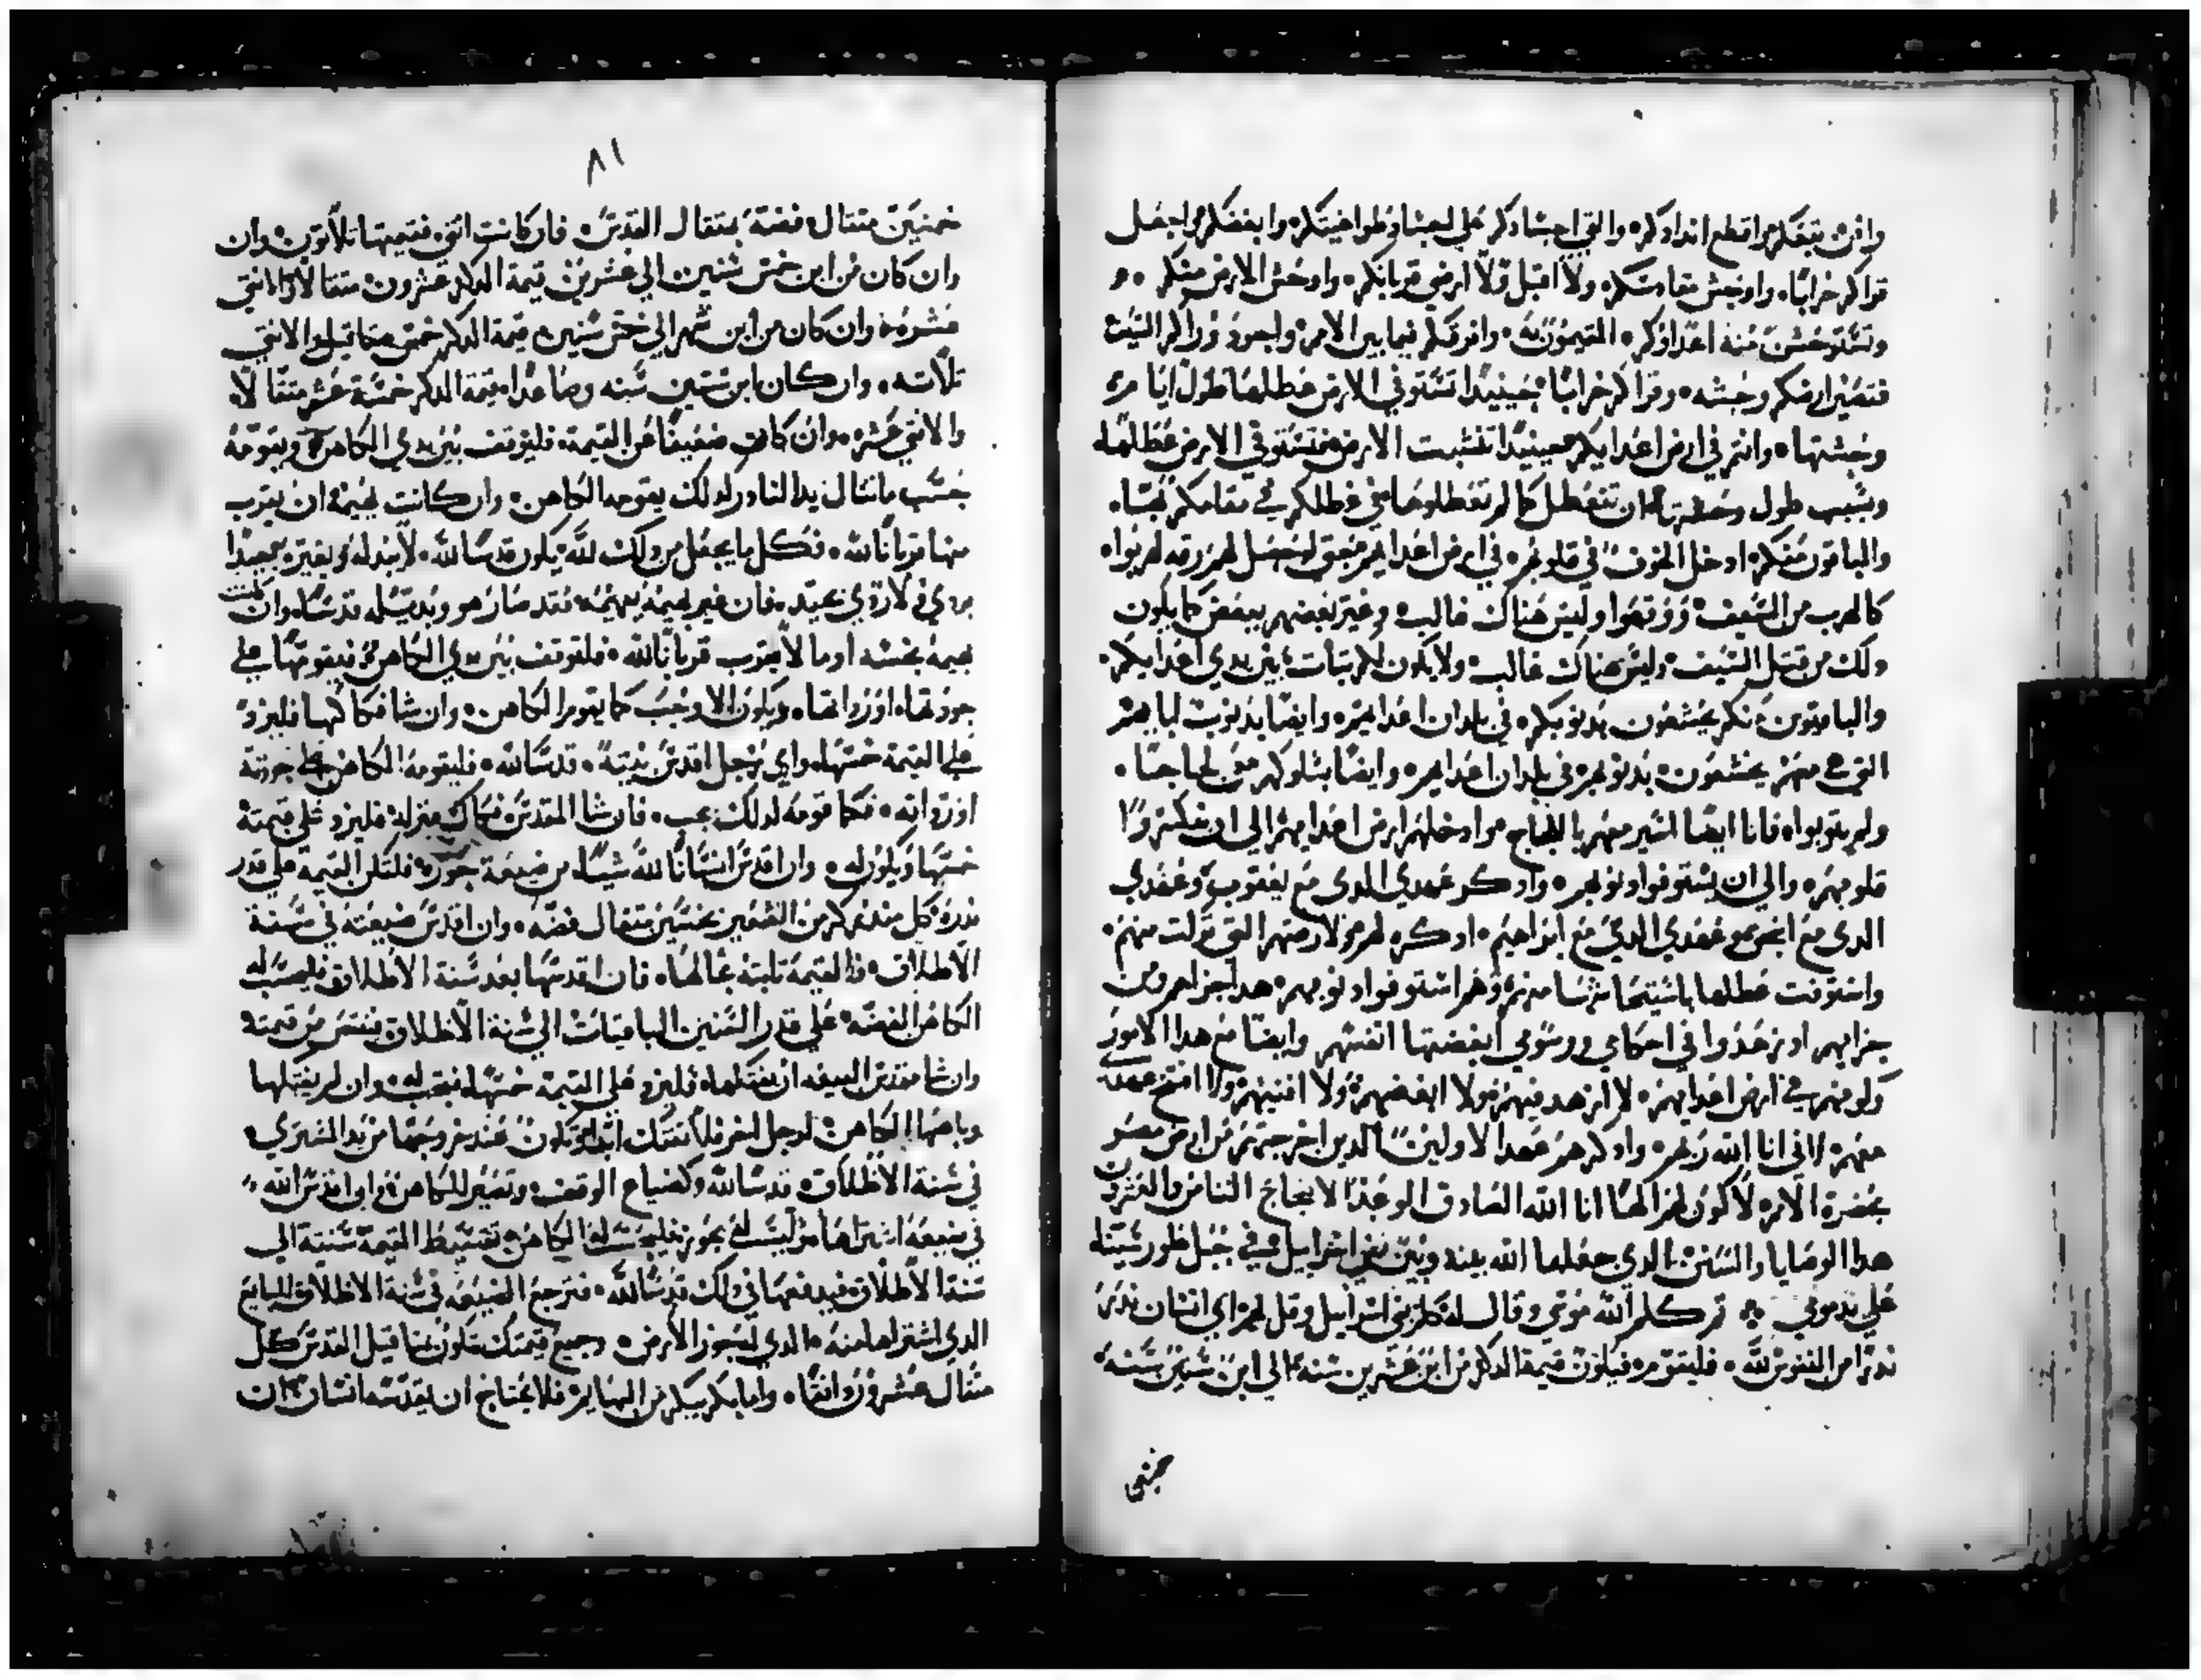 وافرق بتفكر واقطع اندادكم والقي اجسادكم علي اجساد طواغيتكم وابغضكم واجعل
قراكم خرابا واوحش مقادسكم ولا اقبل ولا ارضي قربانكم واوحش الارض منكم
وتستوحش منه اعداوكم المقيمون به وافرقكم فيما بين الامم واجرد وراكم السيف
فتصير ارضكم وحشه وقراكم خرابا حينيدا تستوفي الارض عطلها طول ايام
وحشتها وانتم في ارض اعدايكم حينيدا تسبت الارض فتستوفي الارض عطلها
وبسبب طول وحشتها ان تتعطل كما لم تعطلوها في عطلكم في مقامكم بها
والباقون منكم ادخل الخوف في قلوبهم في ارض اعدايهم حتي لو حصل لهم ورقه لهربوا
كالهرب من السيف ووقعوا وليس هناك غالب وعثر بعضهم ببعض كما يكون
دلك من قتل السيف وليس هناك غالب ولا يكون لكم تبات بين يدي اعدايكم
والباقون منكم يخشعون بدنوبكم في بلدان اعدايهم وايضا بدنوب ابايهم
التي معهم يخشعون بدنوبهم في بلدان اعدايهم وايضا بسلوكهم معي لجاجا
ولم يتوبوا فانا ايضا اسير معهم باللجاج وادخلهم ارض اعدايهم الي ان تنكسر
قلوبهم والي ان يستوفوا دنوبهم وادكر عهدي الدي مع يعقوب وعهدي
الدي مع اسحق مع عهدي الدي مع ابراهيم ادكره لهم ولارضهم التي تركت منهم
واستوفت عطلها باستيحاشها منهم وهم استوفوا دنوبهم هدا جزاهم من
جزايهم اد زهدوا في احكامي ورسومي ابغضتها انفسهم وايضا مع هدا الامور
كونهم في ارض اعدايهم لم ازهد فيهم ولا ابغضهم ولا افنيهم ولا افسخ عهدي
معهم لاني انا الله ربهم وادكر هم عهد الاولين الدين اخرجتهم من ارض مصر
بحضرة الامم لاكون لهم الها انا الله الصادق الوعد
هدا الوصايا والسنن الدي جعلها الله بينه وبين بني اسراييل في جبل طور سينا
علي يد موسي تم كلم الله موسي وقال له كلم بني اسراييل وقل لهم اي انسان ندر
ندرا من النفوس لله فليقوم فيكون قيمة الدكر من ابن عشرين سنه الي ابن ستين سنه
خمسين
٨١
خمسين متقال فضة بمتقال القدس فان كانت انتي فقيمتها تلاتون وان
وان كان من ابن خمس سنين الي عشرين قيمة الدكر عشرون متقالا والانتي
عشره وان كان من ابن شهر الي خمس سنين قيمة الدكر خمس متاقيل والانتي
تلاته وان كان ابن ستين سنه وصاعدا قيمة الدكر خمسة عشر متقالا
والانتي عشره وان كان ضعيفا عن القيمة فليوقف بين يدي الكاهن ويقومه
حسب ما تنال يد النادر لدلك يقومه الكاهن وان كانت بهيمة ان يقرب
منها قربانا لله فكل ما يجعل من دلك لله يكون قدسا لله لا يبدله ولا يغيره بجيدا
بردي ولا ردي بجيد فان غير بهيمه ببهيمه فقد صار هو وبديله قدسا وان كانت
بهيمه نجسه او ما لا يقرب قربانا لله فلتوقف بين يدي الكاهن فيقومها علي
جودتها او رداتها ويكون الاوجب كما يقوم الكاهن وان شا فكاكها فليزد
علي القيمة خمسها واي رجل اقدس بيته قدسا لله فليقومه الكاهن علي جودته
او رداته فكما قومه لدلك يجب فان شا المقدس فكاك منزله فليزد علي قيمته
خمسها ويكون له وان اقدس انسانا لله شيا من ضيعة حوزه فلتكن القيمة علي قدر
بدره كل من الشعير بخمسين متقال فضه وان اقدس ضيعته في سنة
الاطلاق فالقيمة تابتة بحالها فان اقدسها بعد سنة الاطلاق فليحسب له
الكاهن الفضه علي قدر السنين الباقيات الي سنة الاطلاق ينقص من قيمته
وان شا مقدس الضيعه ان يفتكها فليزد علي القيمة خمسها فتجب له وان لم يفتكها
وباعها الكاهن لرجل اخر فلا تفتك ابدا وتكون عند خروجها من يد المشتري
في سنة الاطلاق قدسا لله كضياع الوقف وتصير للكاهن وان اقدس لله
في ضيعة اشتراها من ليست له بحوز فليحسب له الكاهن تقسيط القيمة سنية الي
سنة الاطلاق فيدفعها في دلك قدسا لله فترجع الضيعه في سنة الاطلاق للبايع
الدي اشتراها منه الدي لحوز الارض وجميع قيمتك تكون بمتاقيل القدس كل
متقال عشرون دانقا واما بكر يبكر من البهايم فلا يحتاج ان يقدسه انسان ان